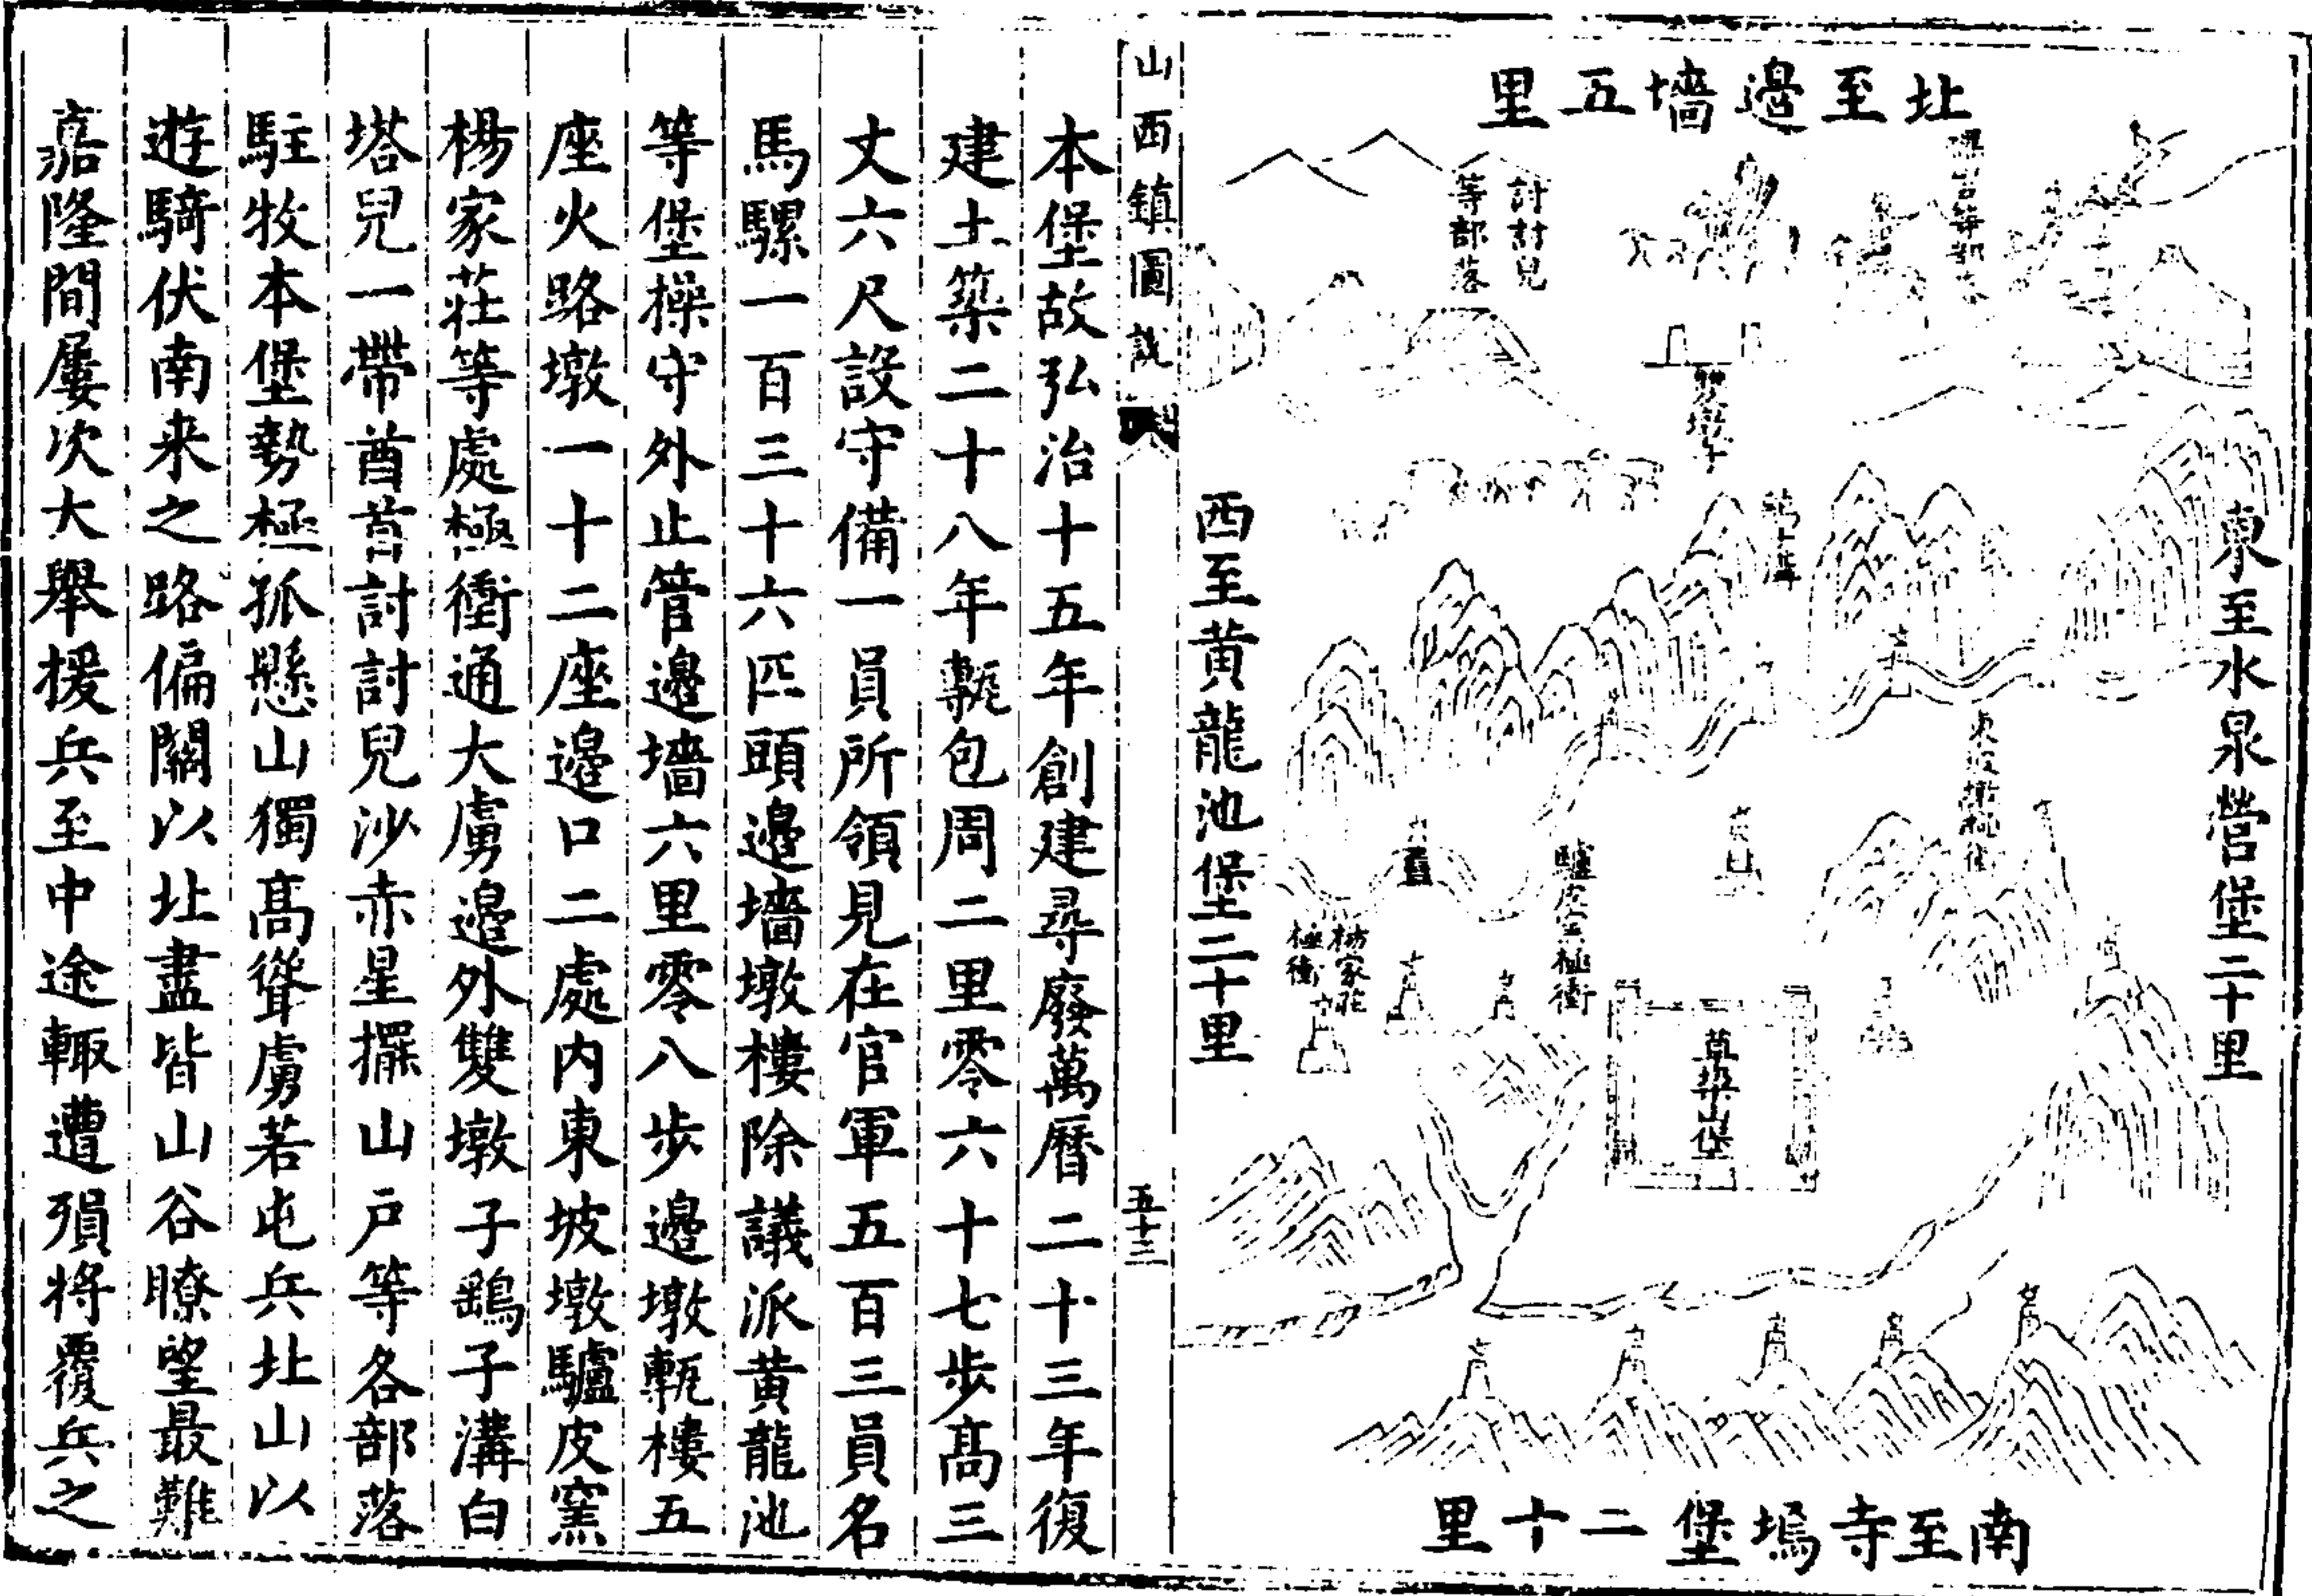 北至邊墻五里
東至水泉營堡二十里
討討兒
等部落
東坡墩極衝
驢皮窯極衝
楊家莊
極衝
草垛山堡
西至黃龍池堡二十里
南至寺塢堡二十里
山西鎮圖說
五十三
本堡故弘治十五年創建尋廢萬曆二十三年復
建土築二十八年甎包周二里零六十七步高三
丈六尺設守備一員所領見在官軍五百三員名
馬騾一百三十六匹頭邊墻墩樓除議派黃龍池
等堡操守外止管邊墻六里零八步邊墩甎樓五
座火路墩一十二座邊口二處內東坡墩驢皮窯
楊家莊等處極衝通大虜邊外雙墩子鷂子溝白
塔兒一帶酋首討討兒沙赤星擺山戶等各部落
駐牧本堡勢極孤懸山獨高聳虜若屯兵北山以
遊騎伏南来之路偏關以北盡皆山谷瞭望最難
嘉隆間屢次大舉援兵至中途輒遭殞將覆兵之